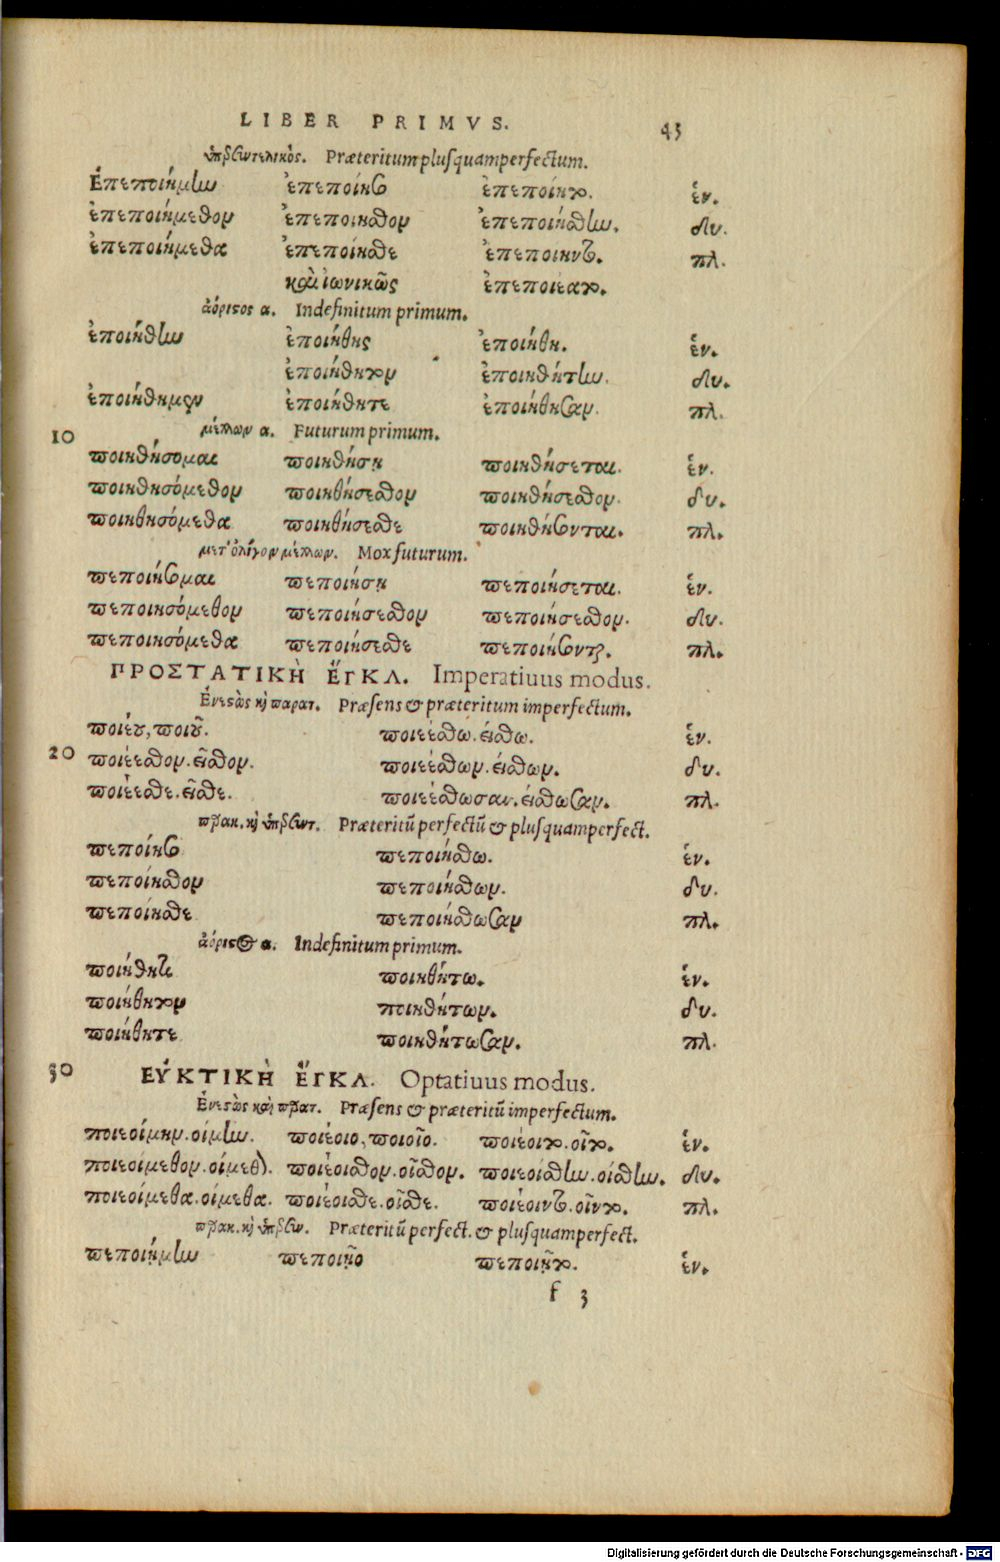 LIBER PRIMVS. 43
ὑπερσυντελικὸς. Præteritum plusquamperfectum.
Ἐπεποιήμην ἐπεποίησο ἐπεποίητο. ἑν.
ἐπεποιήμεθον ἐπεποίησθον ἐπεποιήσθην. δυ.
ἐπεποιήμεθα ἐπεποίησθε ἐπεποίηντο. πλ.
καὶ ἰωνικῶς ἐπεποιέατο.
ἀόριστος α. Indefinitum primum.
ἐποιήθην ἐποιήθης ἐποιήθη. ἑν.
ἐποιήθητον ἐποιηθήτην. δυ.
ἐποιήθημεν ἐποιήθητε ἐποιήθησαν. πλ.
10 μέλλων α. Futurum primum.
ποιηθήσομαι ποιηθήσῃ ποιηθήσεται. ἑν.
ποιηθησόμεθον ποιηθήσεσθον ποιηθήσεσθον. δυ.
ποιηθησόμεθα ποιηθήσεσθε ποιηθήσονται. πλ.
μετ' ὀλίγον μέλλων. Mox futurum.
πεποιήσομαι πεποιήσῃ πεποιήσεται. ἑν.
πεποιησόμεθον πεποιήσεσθον πεποιήσεσθον. δυ.
πεποιησόμεθα πεποιήσεσθε πεποιήσονται. πλ.
ΠΡΟΣΤΑΤΙΚῊ ἜΓΚΛ. Imperatiuus modus.
Ἐνεστὼς καὶ παρατ. Præsens & præteritum imperfectum.
ποιέου, ποιοῦ. ποιεέσθω. είσθω. ἑν.
20 ποιέεσθον. εῖσθον. ποιεέσθων. είσθων. δυ.
ποιέεσθε. εῖσθε. ποιεέσθωσαν. είσθωσαν. πλ.
παρακ. καὶ ὑπερσυντ. Præteritū perfectū & plusquamperfect.
πεποίησο πεποιήσθω. ἑν.
πεποίησθον πεποιήσθων. δυ.
πεποίησθε πεποιήσθωσαν πλ.
ἀόριστος α. Indefinitum primum.
ποιήθητι ποιηθήτω. ἑν.
ποιήθητον ποιηθήτων. δυ.
ποιήθητε ποιηθήτωσαν. πλ.
30 ΕΥ̓ΚΤΙΚῊ ἜΓΚΛ. Optatiuus modus.
Ἐνεστὼς καὶ παρατ. Præsens & præteritū imperfectum.
ποιεοίμην. οίμην. ποιέοιο, ποιοῖο. ποιέοιτο. οῖτο. ἑν.
ποιεοίμεθον. οίμεθον. ποιέοισθον. οῖσθον. ποιεοίσθην. οίσθην. δυ.
ποιεοίμεθα. οίμεθα. ποιέοισθε. οῖσθε. ποιέοιντο. οῖντο. πλ.
παρακ. καὶ ὑπερσυν. Præteritū perfect. & plusquamperfect.
πεποιῄμην πεποιῇο πεποιῇτο. ἑν.
f 3
Digitalisierung gefördert durch die Deutsche Forschungsgemeinschaft - DFG